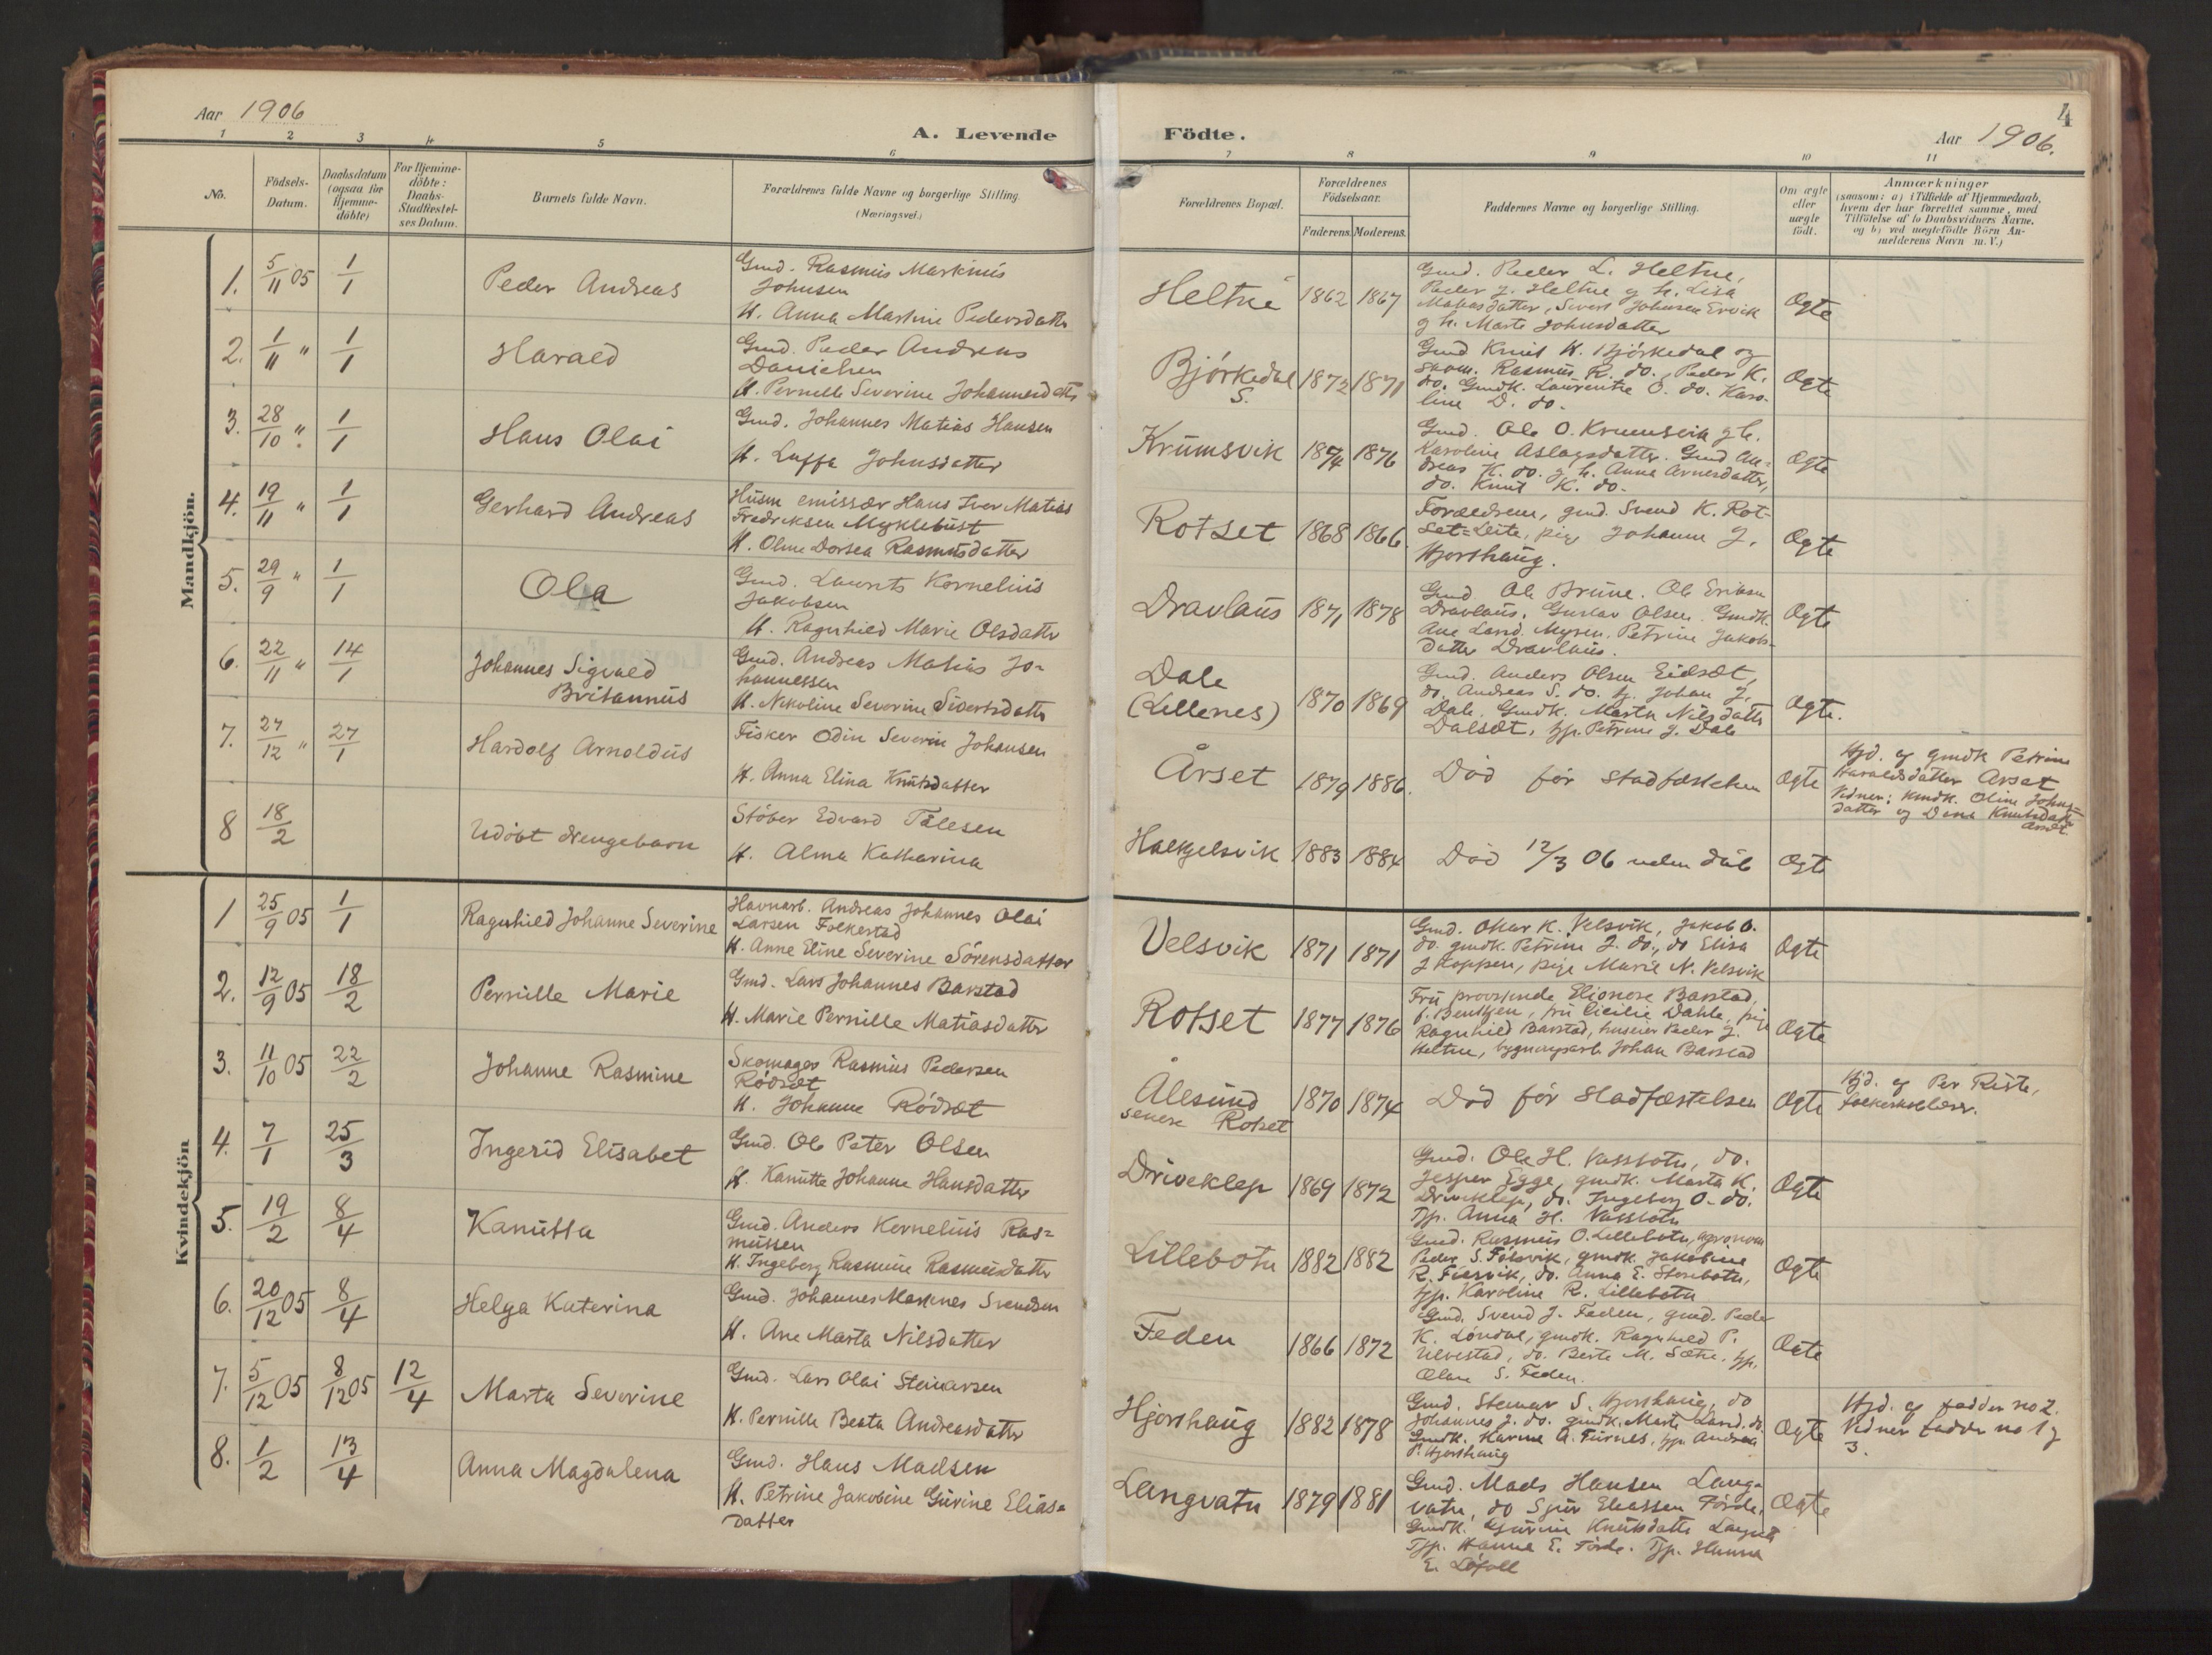 Aar 1906
A. Levende Födte.
Aar 1906.
4
1 2 3 4 5 6 7 8 9 10 11
No.
Födsels-
Datum.
Daabsdatum
(ogsaa for
Hjemme-
döbte)
For Hjemme-
döbte:
Daabs-
Stadfestel-
ses Datum.
Barnets fulde Navn.
Forældrenes fulde Navne og borgerlige Stilling.
(Næringsvei.)
Forældrenes Bopæl.
Forældrenes
Födselsaar.
Faderens. Moderens.
Faddernes Navne og borgerlige Stilling.
Om ægte
eller
uægte
födt.
Anmærkninger
(saasom: a) i Tilfælde af Hjemmedaab,
hvem der har forrettet samme, med
Tilföielse af to Daabsvidners Navne,
og b) ved uægtefödte Börn An-
melderens Navn m. V.)
Mandkjön.
1. 5/11 05 1/1 Peder Andreas
Gmd. Rasmus Markinus
Johnsen
H. Anna Martine Pedersdatter
Heltne 1862 1867
Gmd. Peder L. Heltne,
Peder J. Heltne g h. Lisa
Matiasdatter, Sivert Johnsen Ervik
g h. Marte Johnsdatter
Ogte
2. 1/11 " 1/1 Harald
Gmd. Peder Andreas
Danielsen
H. Pernille Severine Johannesdatter
Bjórkedal
S. 1872 1871
Gmd Knut H. Bjórkedal og
skom. Rasmus R. do., Peder K.
do. Gmdk. Laurentse O. do. Karo-
line D. do.
Ogte
3. 28/10 " 1/1 Hans Olai
Gmd. Johannes Matias Hansen
H. Luffa Johnsdatter
Krumsvik 1874 1876
Gmd. Ole O. Krumsvik g h.
Karoline Aslagsdatter. Gmd An-
dreas K. do. g h. Anna Arnesdatter,
do. Knut K. do.
Ogte
4. 19/11 " 1/1 Gerhard Andreas
Husm emissær Hans Iver Matias
Fredriksen Myklebust
H. Oline Dorsea Rasmusdatter
Rotset 1868 1866.
Forældrene, gmd. Svend K. Rot-
set=Leite, pige Johanne J.
Hjorthaug.
Ogte
5. 29/9 " 1/1 Ola
Gmd. Laurits Kornelius
Jakobsen
H. Ragnhild Marie Olsdatter
Dravlaus 1871 1878
Gmd Ole Brune. Ole Eriksen
Dravlaus. Gustav Olsen. Gmdk.
Ane Larsd. Myren. Petrine Jakobs-
datter Dravlaus.
Ogte
6. 22/11 " 14/1 Johannes Sigvald
Britannus
Gmd. Andreas Matias Jo-
hannessen
H. Nikoline Severine Sivertsdatter
Dale
(Lillenes) 1870 1869
Gmd. Anders Olsen Eidsæt,
do. Andreas S. do. tj. Johan J.
Dale. Gmdk. Marta Nilsdatter
Dalsæt, tjp. Petrine J. Dale
Ogte.
7. 27/12 " 27/1 Hardolf Arnoldus
Fisker Odin Severin Johansen
H. Anna Elina Knutsdatter
Årset 1879 1886.
Död før stadfæstelsen
Ogte
Hjd. af gmdk Petrine
Haraldsdatter Årset
Vidner: kmdk. Oline Johns-
datter og Dina Knutsdatter
Årset.
8 18/2 Udöbt drengebarn
Stöber Edvard Tålesen
H. Alma Katharina
Halkjelsvik 1883 1884
Död 12/3 06 uden dåb
Ogte
Kvindekjön
1 25/9 05 1/1 Ragnhild Johanne Severine
Havnarb. Andreas Johannes Olai
Larsen Folkestad
H. Anne Eline Severine Sörensdatter
Velsvik 1871 1871
Gmd. Oskar K. Velsvik, Jakob O.
do. gmdk. Petrine J. do., do Elisa
J Koppen, pige Marie N. Velsvik
Ogte
2. 12/9 05 18/2 Pernille Marie
Gmd. Lars Johannes Barstad
H. Marie Pernille Matiasdatter
Rotset 1877 1876
Fru provstinde Elionore Barstad,
f. Bentzen, fru Cicilie Dahle, pige
Ragnhild Barstad, huseier Peder J.
Heltne, bygningsarb. Johan Barstad
Ogte
3. 11/10 05 22/2 Johanne Rasmine
Skomager Rasmus Pedersen
Rödsæt
H. Johanne Rödsæt
Ålesund
senere Rotset 1870 1874
Död før stadfæstelsen
Ogte
Hjd. af Per Riste,
folkeskolelærer.
4. 7/1 25/3 Ingerid Elisabet
Gmd. Ole Peter Olsen
H. Kanutte Johanne Hansdatter
Driveklep 1869 1872
Gmd. Ole H. Vassbotn, do.
Jesper Egge, gmdk. Marta K.
Driveklep, do. Ingeborg O. do.
Tjp. Anna H. Vassbotn
Ogte
5. 19/2 8/4 Kanutta
Gmd. Anders Kornelius Ras-
mussen
H. Ingeborg Rasmine Rasmusdatter
Lillebotn 1882 1882
Gmd. Rasmus O. Lillebotn, agronom
Peder S. Fiksvik, gmdk. Jakobine
R. Fiksvik, do. Anna E. Storebotn,
tjp. Karoline R. Lillebotn
Ogte
6. 20/12 05 8/4 Helga Katerina
Gmd. Johannes Marines Svendsen
H. Ane Marta Nilsdatter
Feden 1866 1872
Gmd. Svend J. Feden, gmd. Peder
K. Löndal, gmdk. Ragnhild P.
Ulvestad, do. Berte M. Sætre. tjp.
Olave S. Feden.
Ogte
7. 5/12 05 8/12 05 12/4 Marta Severine
Gmd. Lars Olai Steinarsen
H. Pernille Beata Andreasdatter
Hjorthaug 1882 1878
Gmd. Steinar S. Hjorthaug, do
Johannes J. do. gmdk. Marte Larsd. do.
Gmdk. Karine A. Furnes, tjp. Andrea
P. Hjorthaug
Ogte
Hjd. af fadder no 2.
Vidner fadder no 1 g
3.
8. 1/2 13/4 Anna Magdalena
Gmd. Hans Madsen
H. Petrine Jakobine Gurine Elias-
datter
Langvatn 1879 1881
Gmd. Mads Hansen Lang-
vatn, do Sjur Eliassen Förde,
Gmdk. Gurine Knutsdatter Langvatn
Tjp. Hanna E. Förde. Tjp. Hanna
E. Löfoll
Ogte